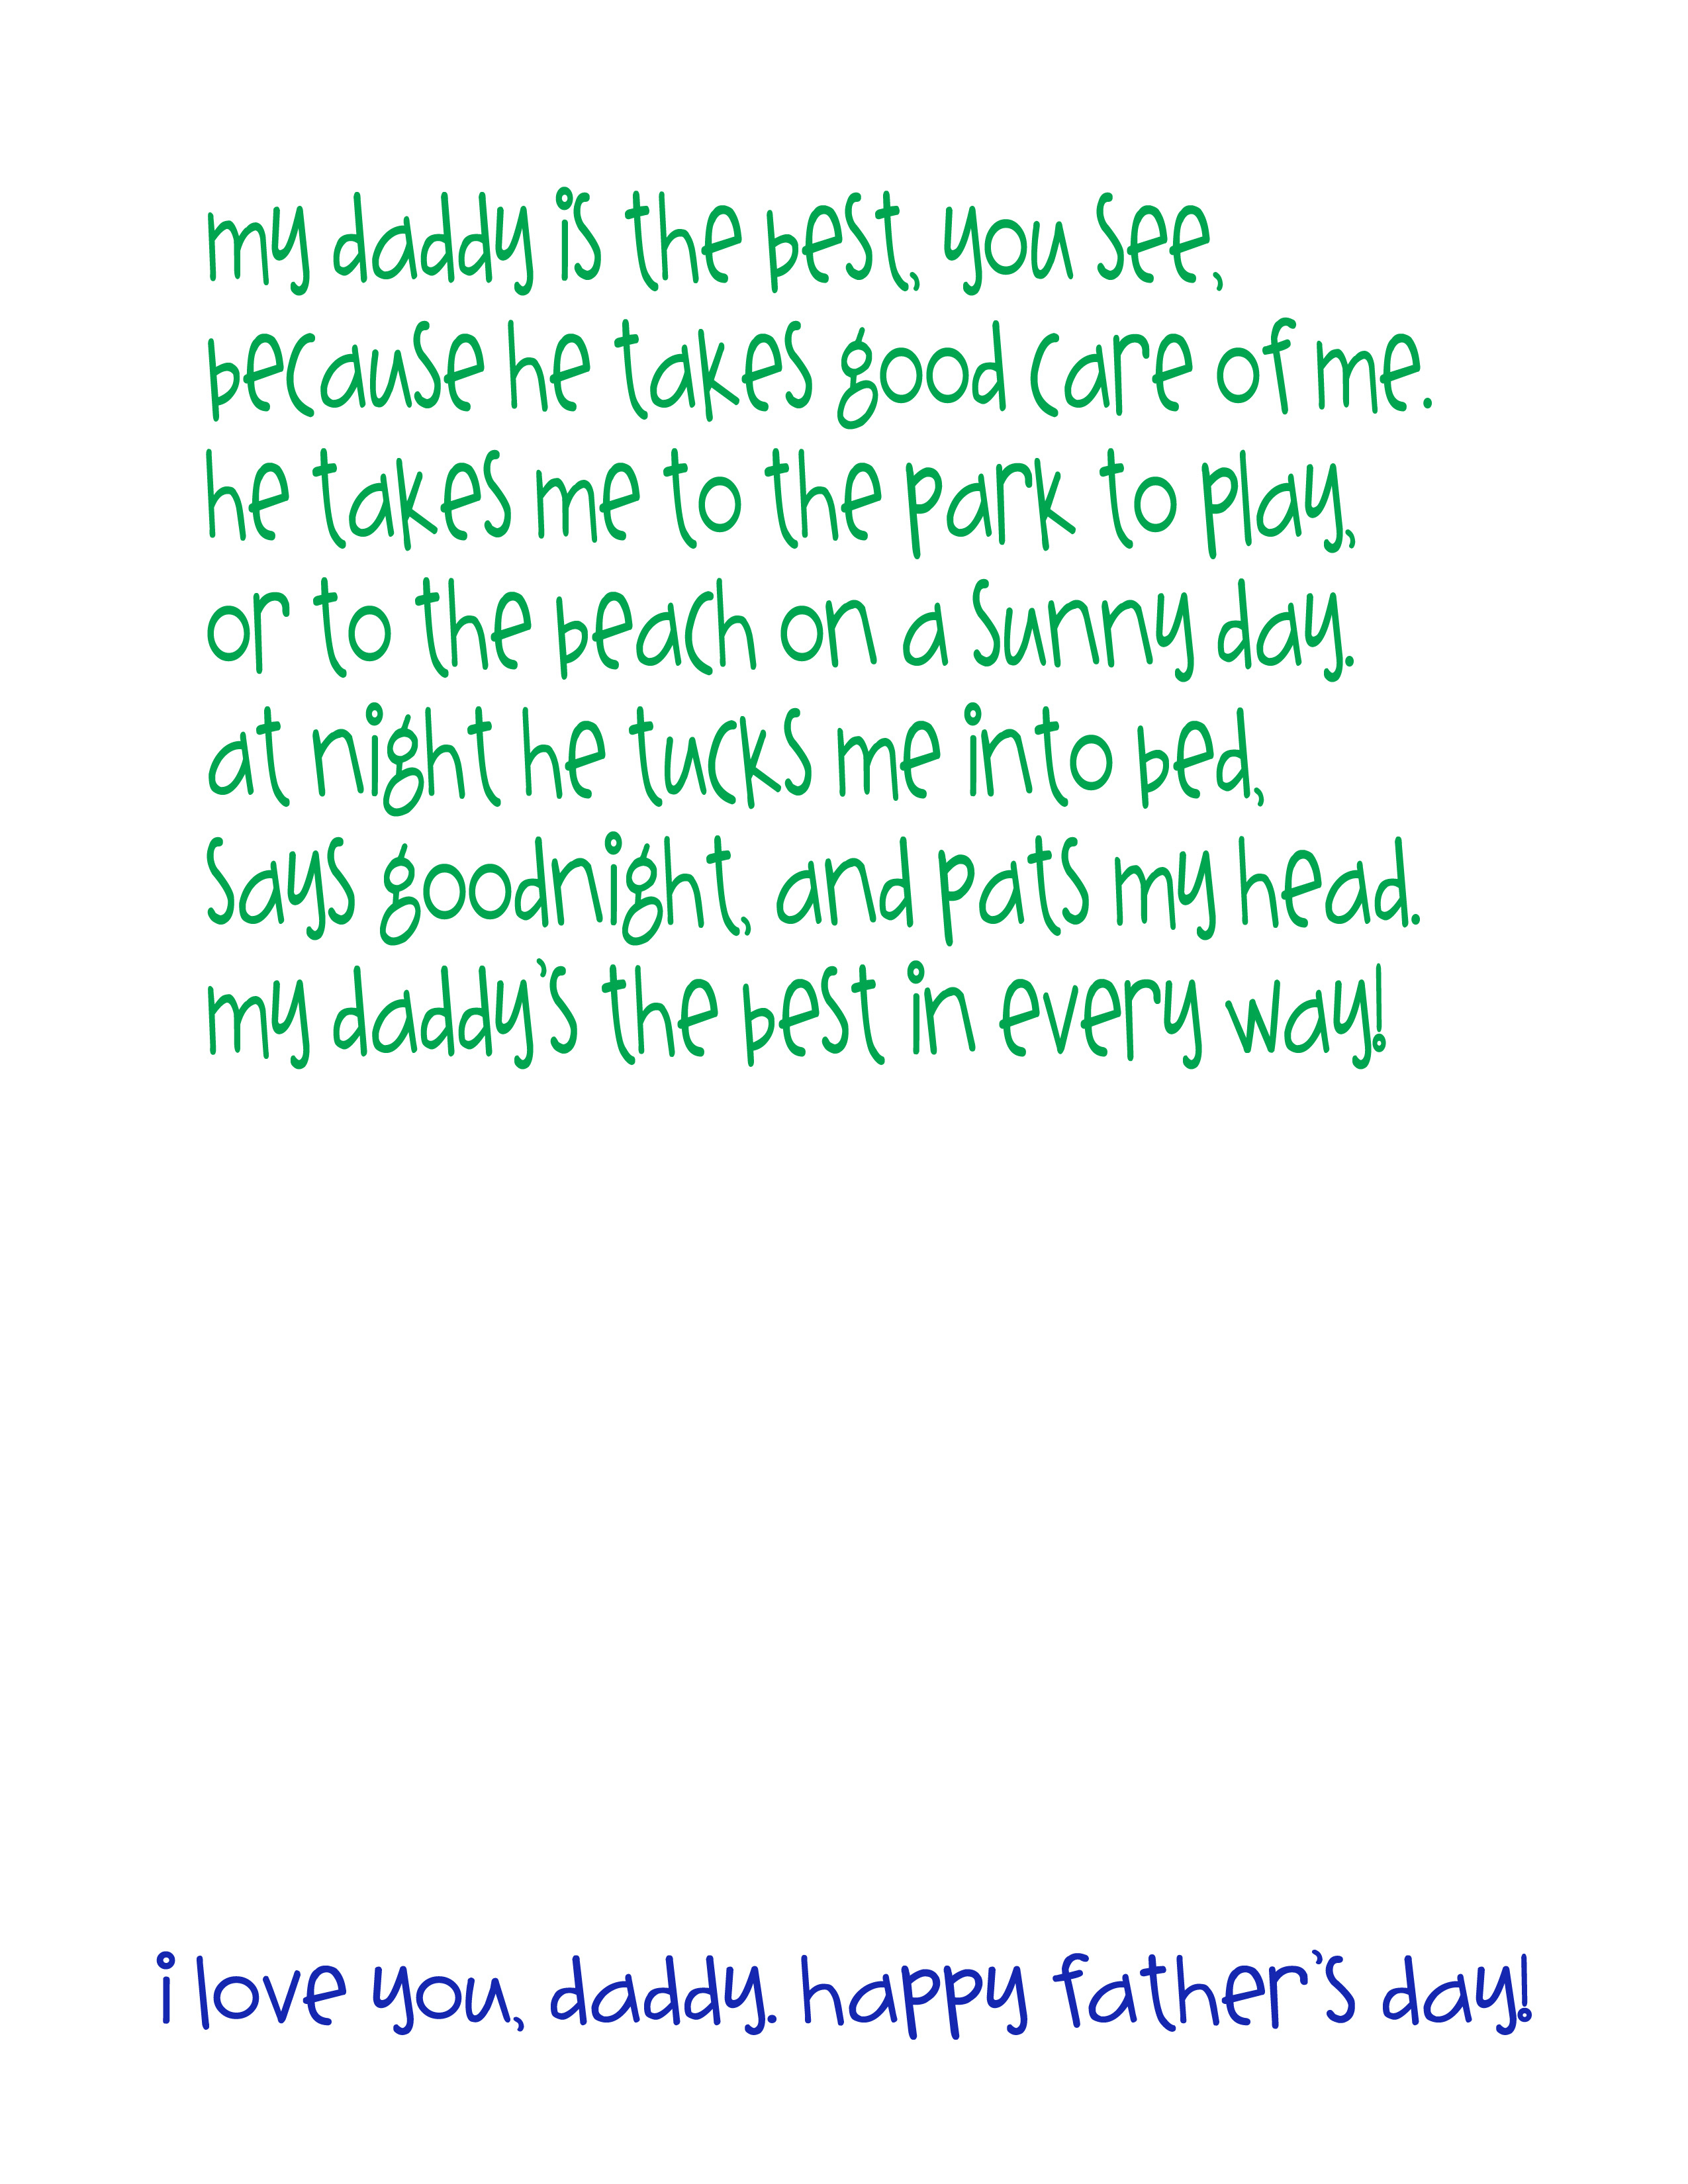 my daddy is the best, you see,
because he takes good care of me.
he takes me to the park to play,
or to the beach on a sunny day.
at night he tucks me into bed,
says goodnight, and pats my head.
my daddy's the best in every way!
i love you, daddy. happy father's day!